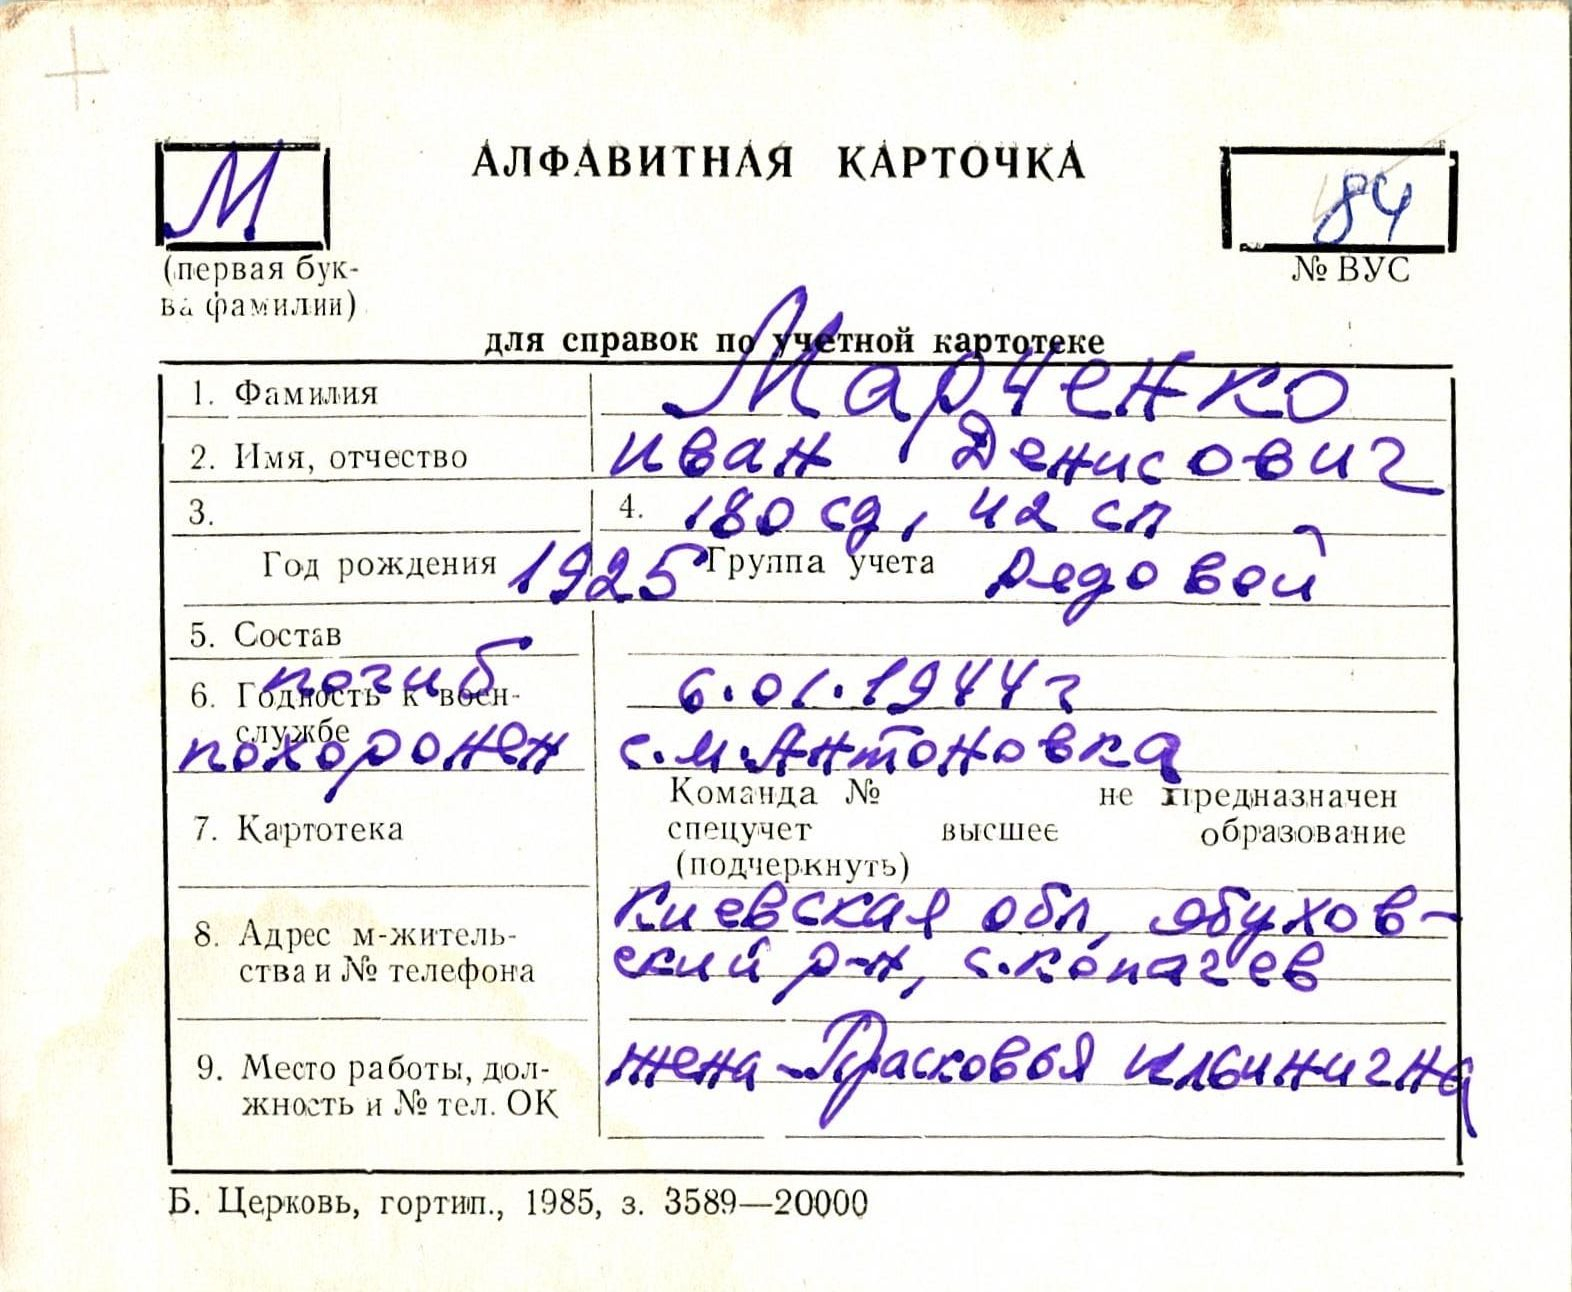 М
АЛФАВИТНАЯ КАРТОЧКА
84
(первая бук-
ва фамилии)
№ ВУС
для справок по учетной картотеке
1. Фамилия Марченко
2. Имя, отчество Иван Денисович
3. 4. 180 сд, 42 сп
Год рождения 1925 Группа учета рядовой
5. Состав
погиб 6.01.1944 г
6. Годность к воен-
службе
похоронен с. м. Антоновка
Команда № не предназначен
7. Картотека спецучет высшее образование
(подчеркнуть)
Киевская обл, Обухов-
8. Адрес м-житель-
ский р-н, с. Копачев
ства и № телефона
9. Место работы, дол- жена - Прасковья Ильинична
жность и № тел. ОК
Б. Церковь, гортип., 1985, з. 3589—20000